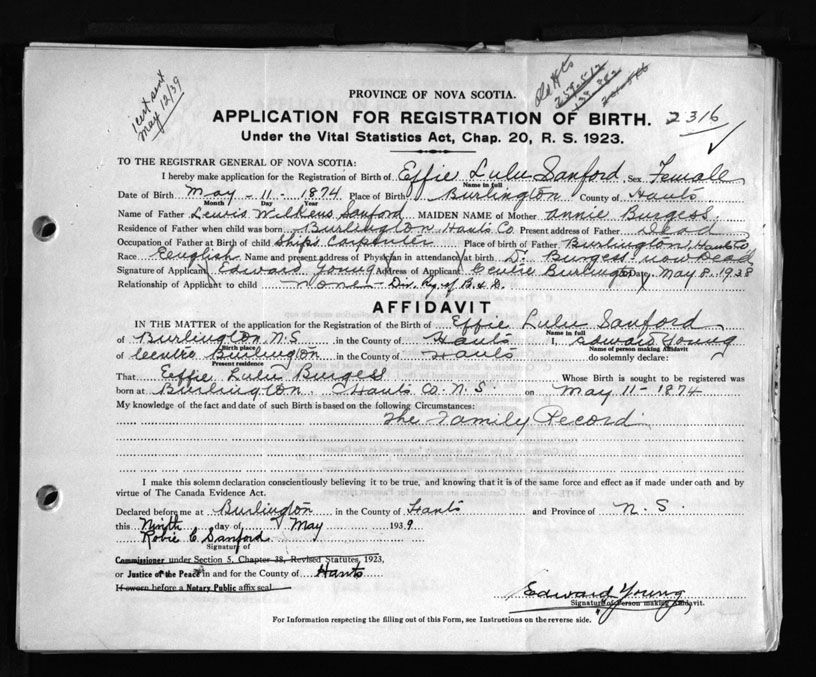 1 cert sent
May 12/39
Old Hts
PROVINCE OF NOVA SCOTIA.
APPLICATION FOR REGISTRATION OF BIRTH. 2316
Under the Vital Statistics Act, Chap. 20, R. S. 1923.
TO THE REGISTRAR GENERAL OF NOVA SCOTIA:
I hereby make application for the Registration of Birth of Effie Lulu Sanford, Sex Female
Name in full
Date of Birth May - 11 - 1874 Place of Birth Burlington County of Hants
Month Day Year
Name of Father Lewis Wilkens Sanford MAIDEN NAME of Mother Annie Burgess
Residence of Father when child was born Burlington Hants Co. Present address of Father Dead
Occupation of Father at Birth of child Ships Carpenter Place of birth of Father Burlington, Hants Co
Race English Name and present address of Physician in attendance at birth Dr. Burgess now Dead
Signature of Applicant Edward Young Address of Applicant Centre Burlington Date May 8. 1938
Relationship of Applicant to child none - Div. Rg. of B & D.
AFFIDAVIT
IN THE MATTER of the application for the Registration of the Birth of Effie Lulu Sanford
Name in full
of Burlington N.S in the County of Hants I, Edward Young
Birth place Name of person making Affidavit
of Centre Burlington in the County of Hants do solemnly declare:
Present residence
That Effie Lulu Burgess Whose Birth is sought to be registered was
born at Burlington, Hants Co. N.S. on May 11 - 1874
My knowledge of the fact and date of such Birth is based on the following Circumstances:
The Family Record
I make this solemn declaration conscientiously believing it to be true, and knowing that it is of the same force and effect as if made under oath and by
virtue of The Canada Evidence Act.
Declared before me at Burlington in the County of Hants and Province of N.S.
this Ninth day of May 1939
Robie C Sanford
Signature of
Commissioner under Section 5, Chapter 38, Revised Statutes, 1923,
or Justice of the Peace in and for the County of Hants
If sworn before a Notary Public affix seal
Edward Young
Signature of Person making Affidavit.
For Information respecting the filling out of this Form, see Instructions on the reverse side.